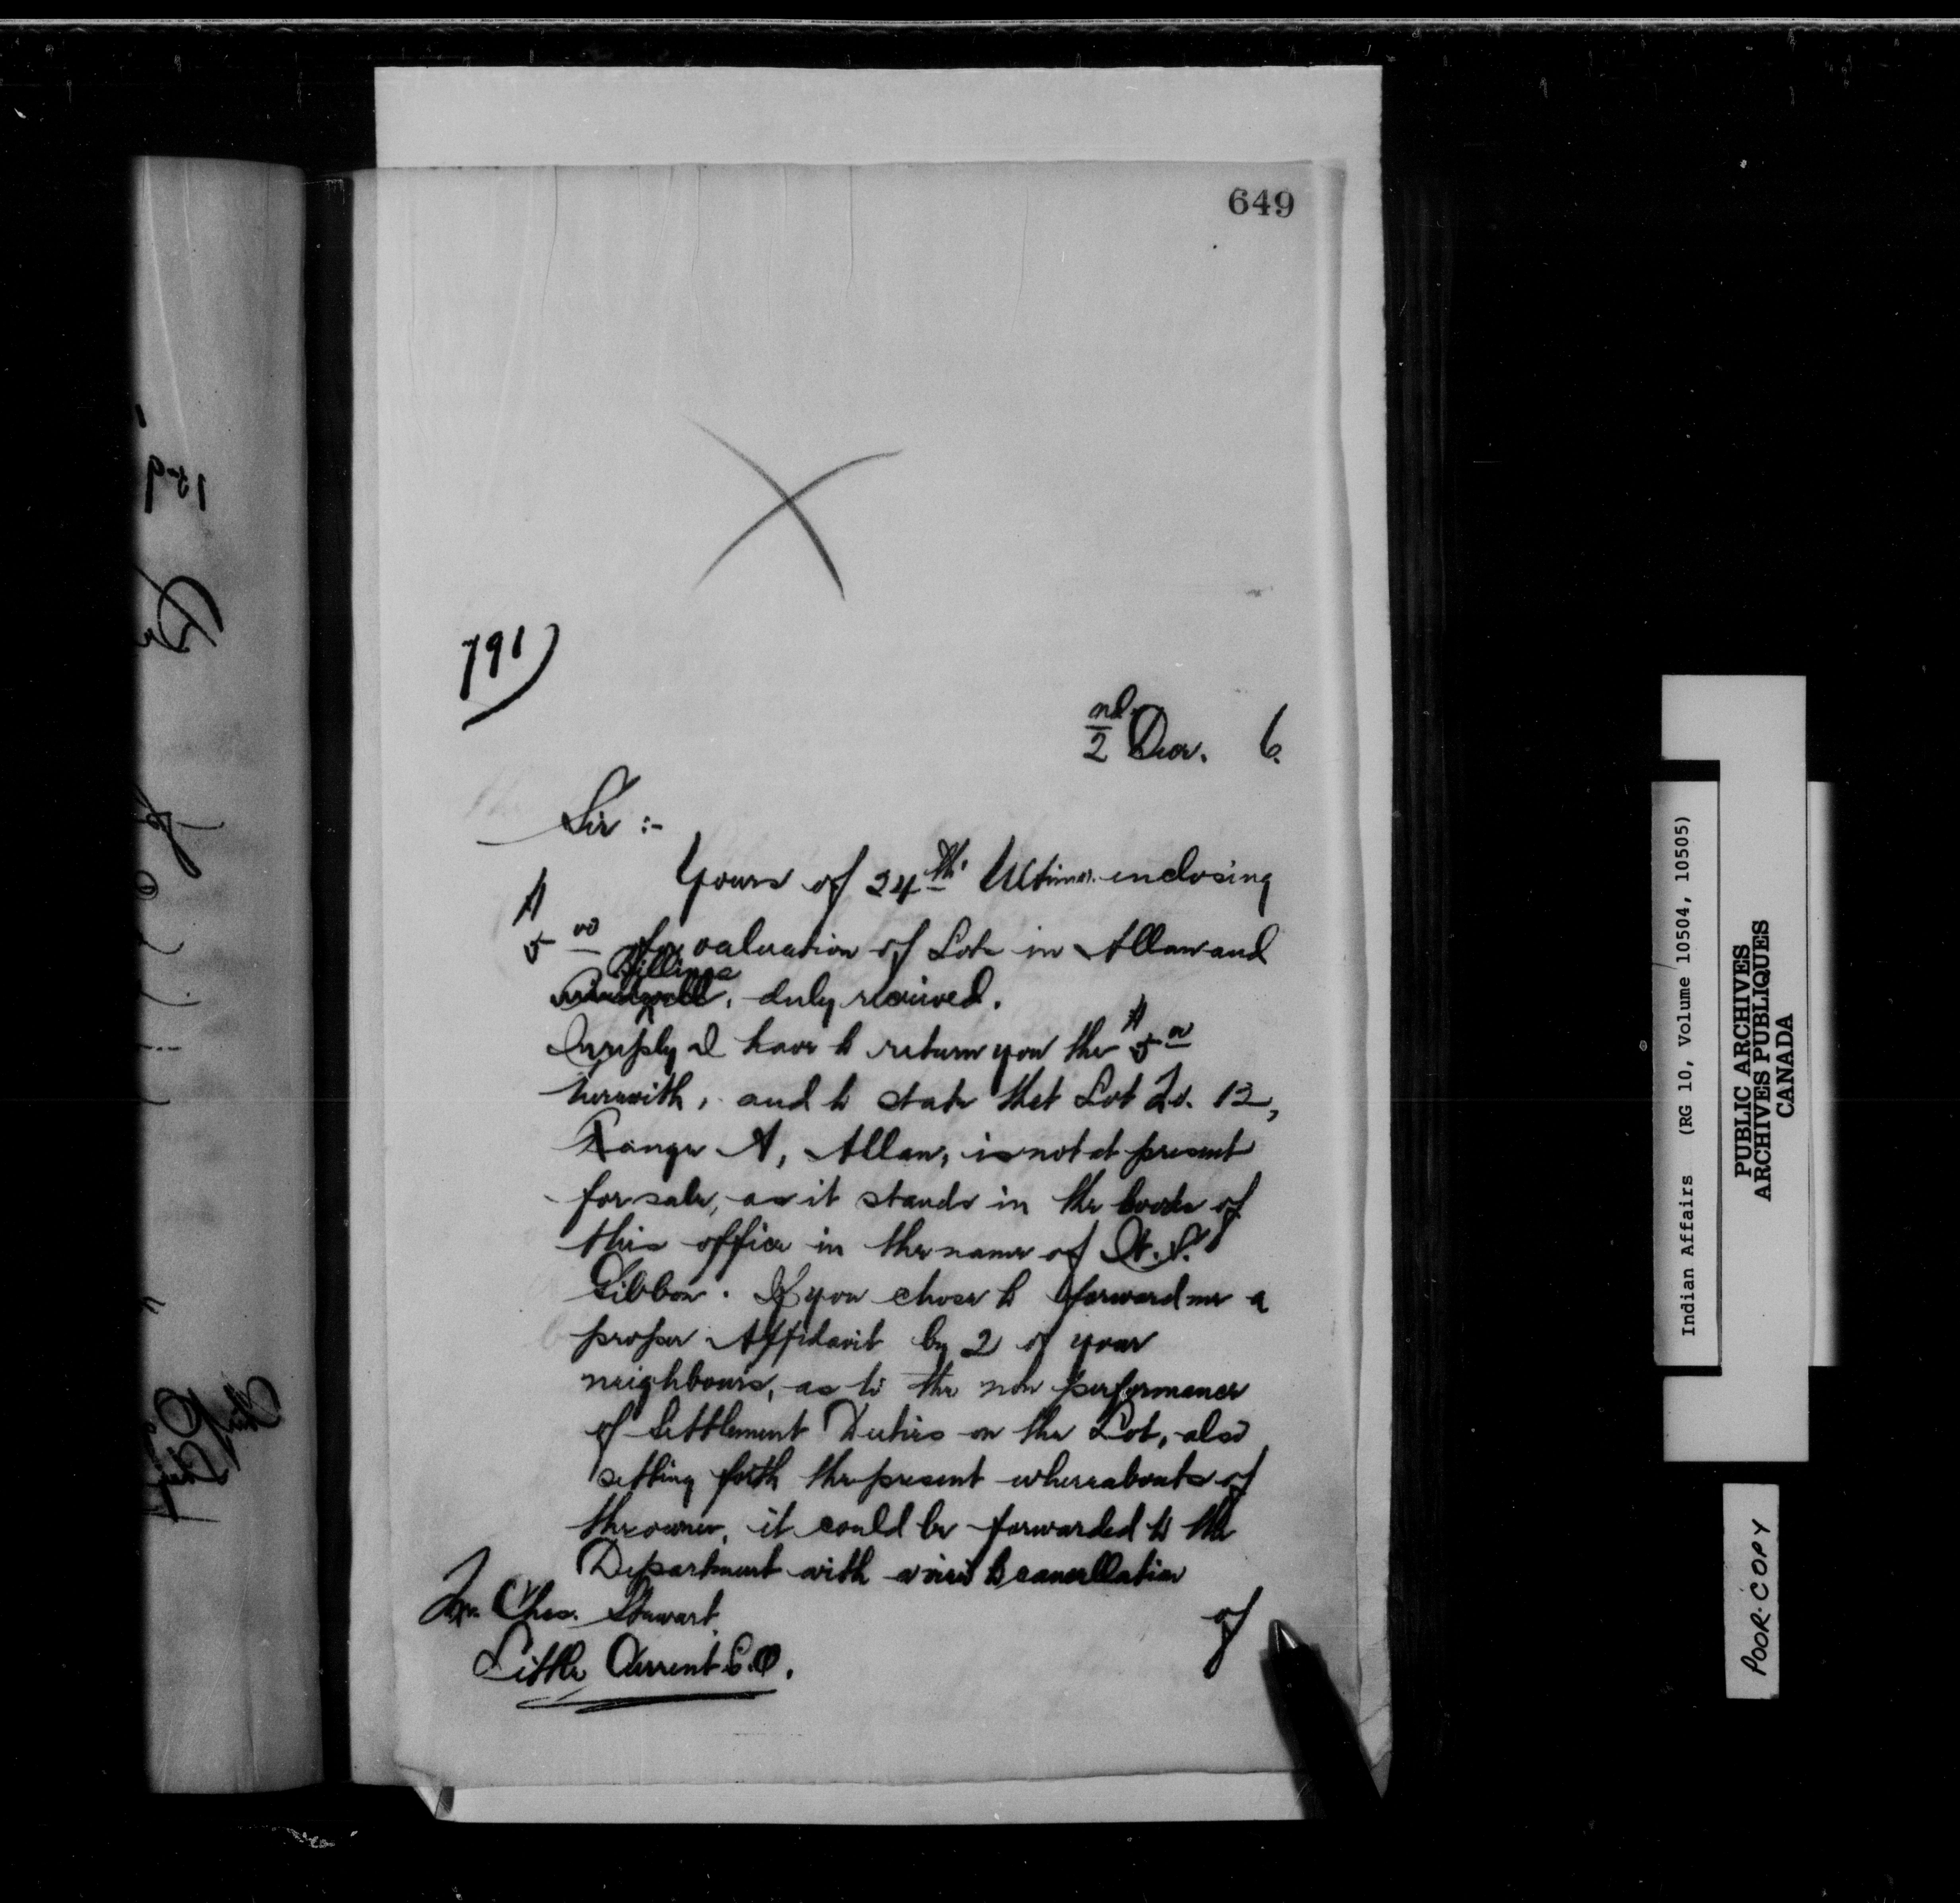 649
791)
2nd Decr. 6.
Sir :-
Yours of 24th Ultimo. enclosing
$5 00 for valuation of Lots in Allan and
Billings
duly received.
In reply I have to return you the $5 00
herewith, and to state that Lot No. 12,
Range A, Allan, is not at present
for sale, as it stands in the books of
this office in the name of
Gibbon. If you chose to forward me a
proper Affidavit by 2 of your
neighbours, as to the non performance
of Settlement Duties on the Lot, also
setting forth the present whereabouts of
the owner, it could be forwarded to the
Department with a view to cancellation
of
Mr. Chas. Stewart.
Little Current P.O.
Indian Affairs (RG 10, Volume 10504, 10505)
PUBLIC ARCHIVES
ARCHIVES PUBLIQUES
CANADA
POOR COPY